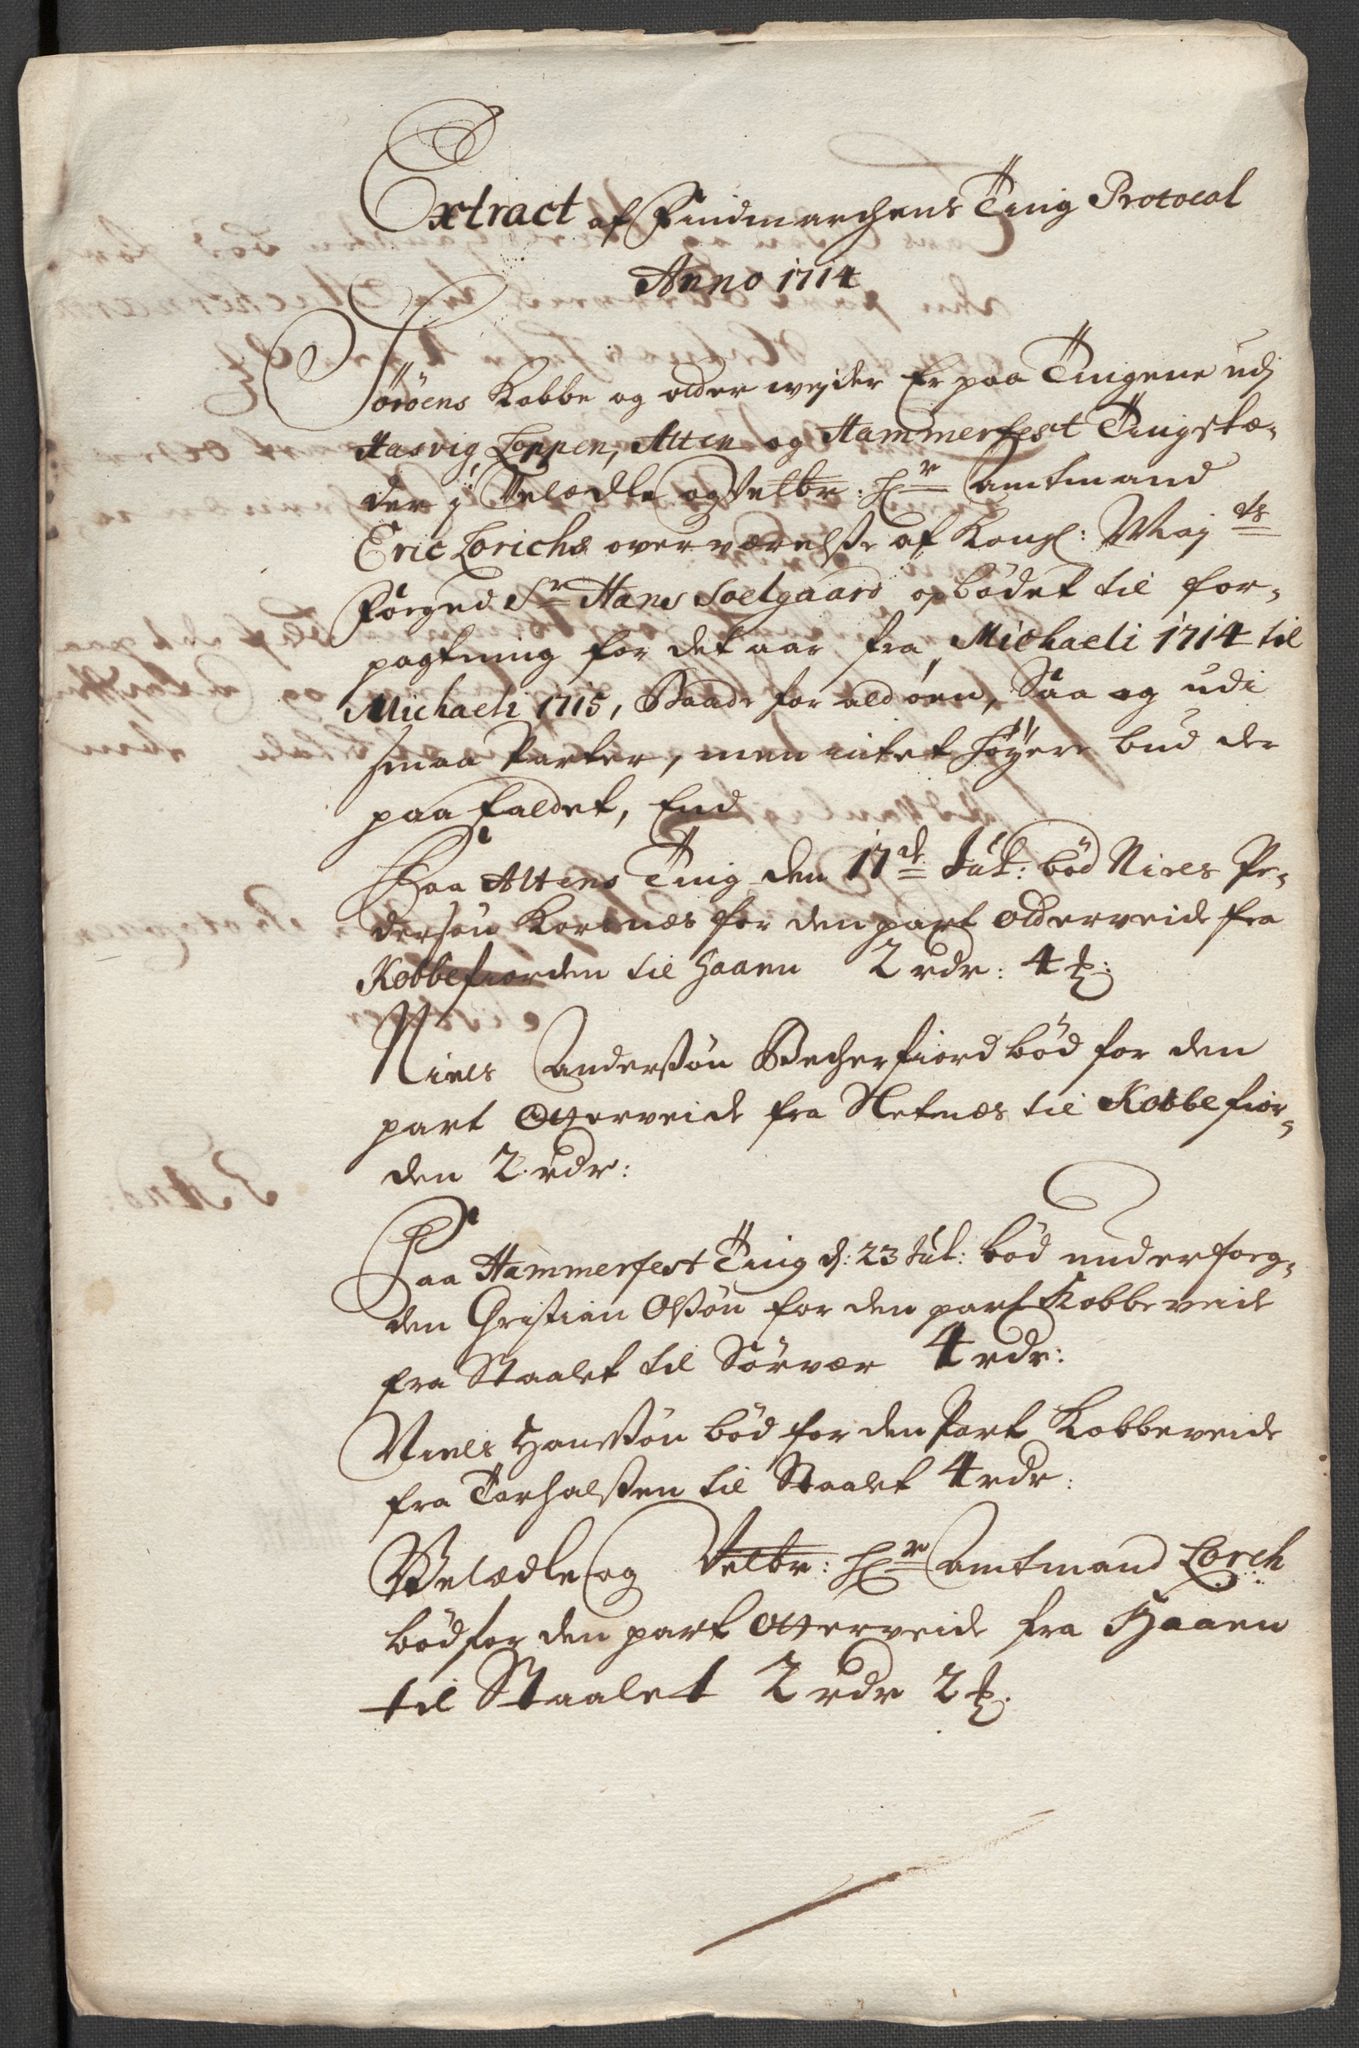 Extract af Findmarchens Ting Protocol
Anno 1714
Söröens Kobbe og odder wejder Er paa Tingene udj
Hasvig, Loppen, Alten og Hammerfest Tingstæ-
der j Velædle og Velbr: Hr Amtmand
Eric Lorichs overværelsse af Kongl: Mayts
Foeged Sr Hans Soelgaard opbödet til for-
pagtning for det aar fra Michaeli 1714 til
Michaeli 1715, Baade for ald öen, Saa og udi
smaa Parter, men intet höyere bud der
paa faldet, End
Paa Altens Ting den 17de Jul: böd Niels Pe-
dersön Korsnæs for den part Odderveide fra
Kobbefiorden til haaen 2 rdr: 4 ℔:
Niels Anderssön Becherfiord böd for den
part Otterveide fra Refnæs til Kobbefior-
den 2 rdr:
Paa Hammerfest Ting d: 23 Jul: böd underfoeg-
den Christian Olssön for den part Kobbeveide
fra Staalet til Sörvær 4 rdr:
Niels Hanssön böd for den Part Kobbeveide
fra Tarhalssen til Staalet 4 rdr:
Velædle og Velbr: Hr Amtmand Lorch
böd for den part Otterveide fra Haaen
til Staalet 2 rdr 2 ℔.